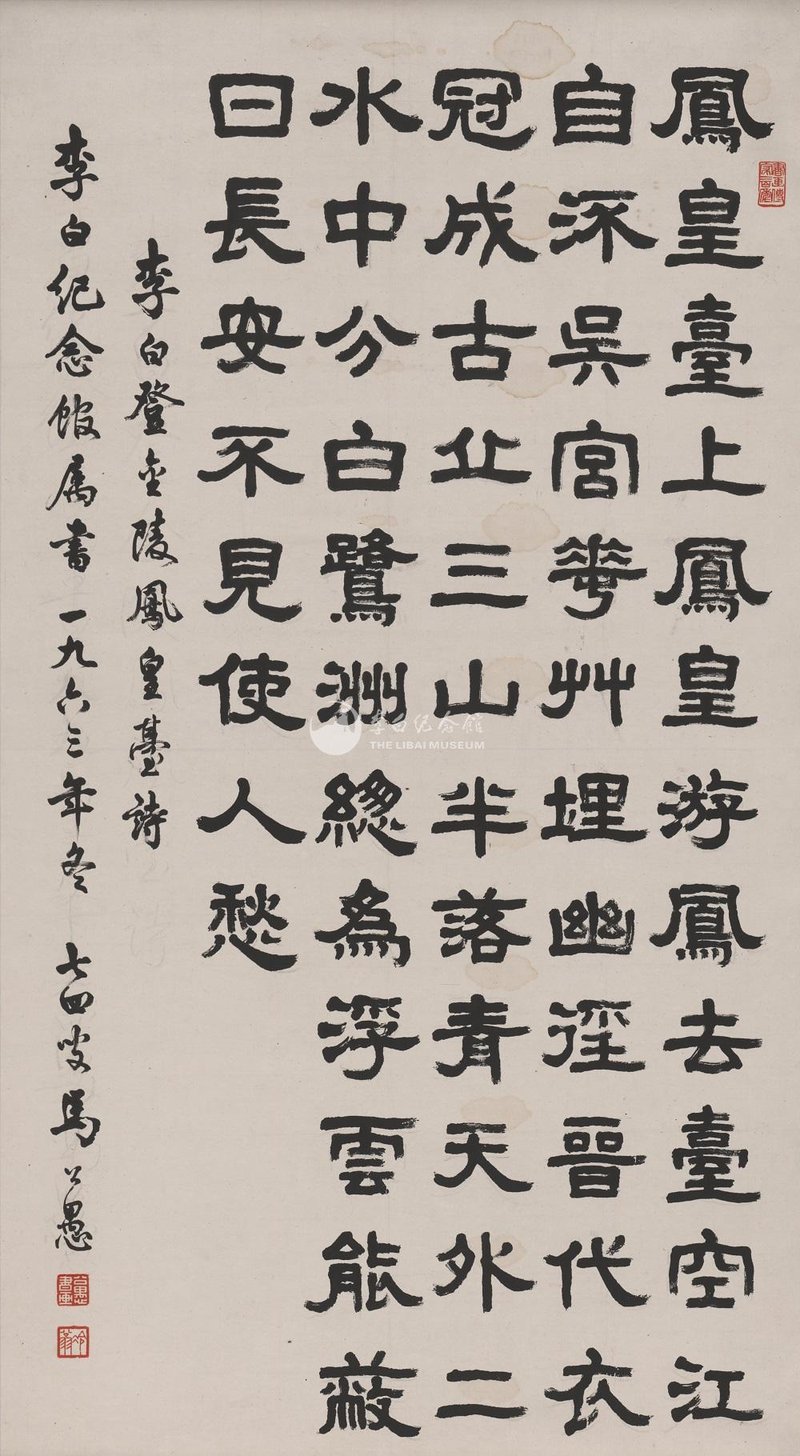 鳳皇臺上鳳皇游鳳去臺空江
自流吳宮華艸埋幽徑晉代衣
冠成古丘三山半落青天外二
水中分白鷺洲總為浮雲能蔽
日長安不見使人愁
李白登金陵鳳皇臺詩
李白纪念馆属書一九六三年冬 七四叟馬公愚
李白纪念館
THE LIBAI MUSEUM